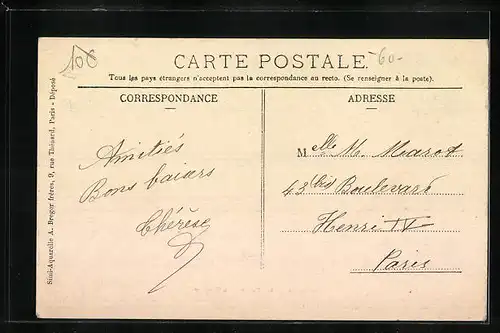 10€
60-
CARTE POSTALE
Tous les pays étrangers n'acceptent pas la correspondance au recto. (Se renseigner à la poste).
CORRESPONDANCE
Amitiés
Bons baisers
Thérèse
ADRESSE
Melle M. Marot
43 bis Boulevard
Henri IV
Paris
Simi-Aquarelle A. Breger frères, 9, rue Thénard, Paris - Déposé